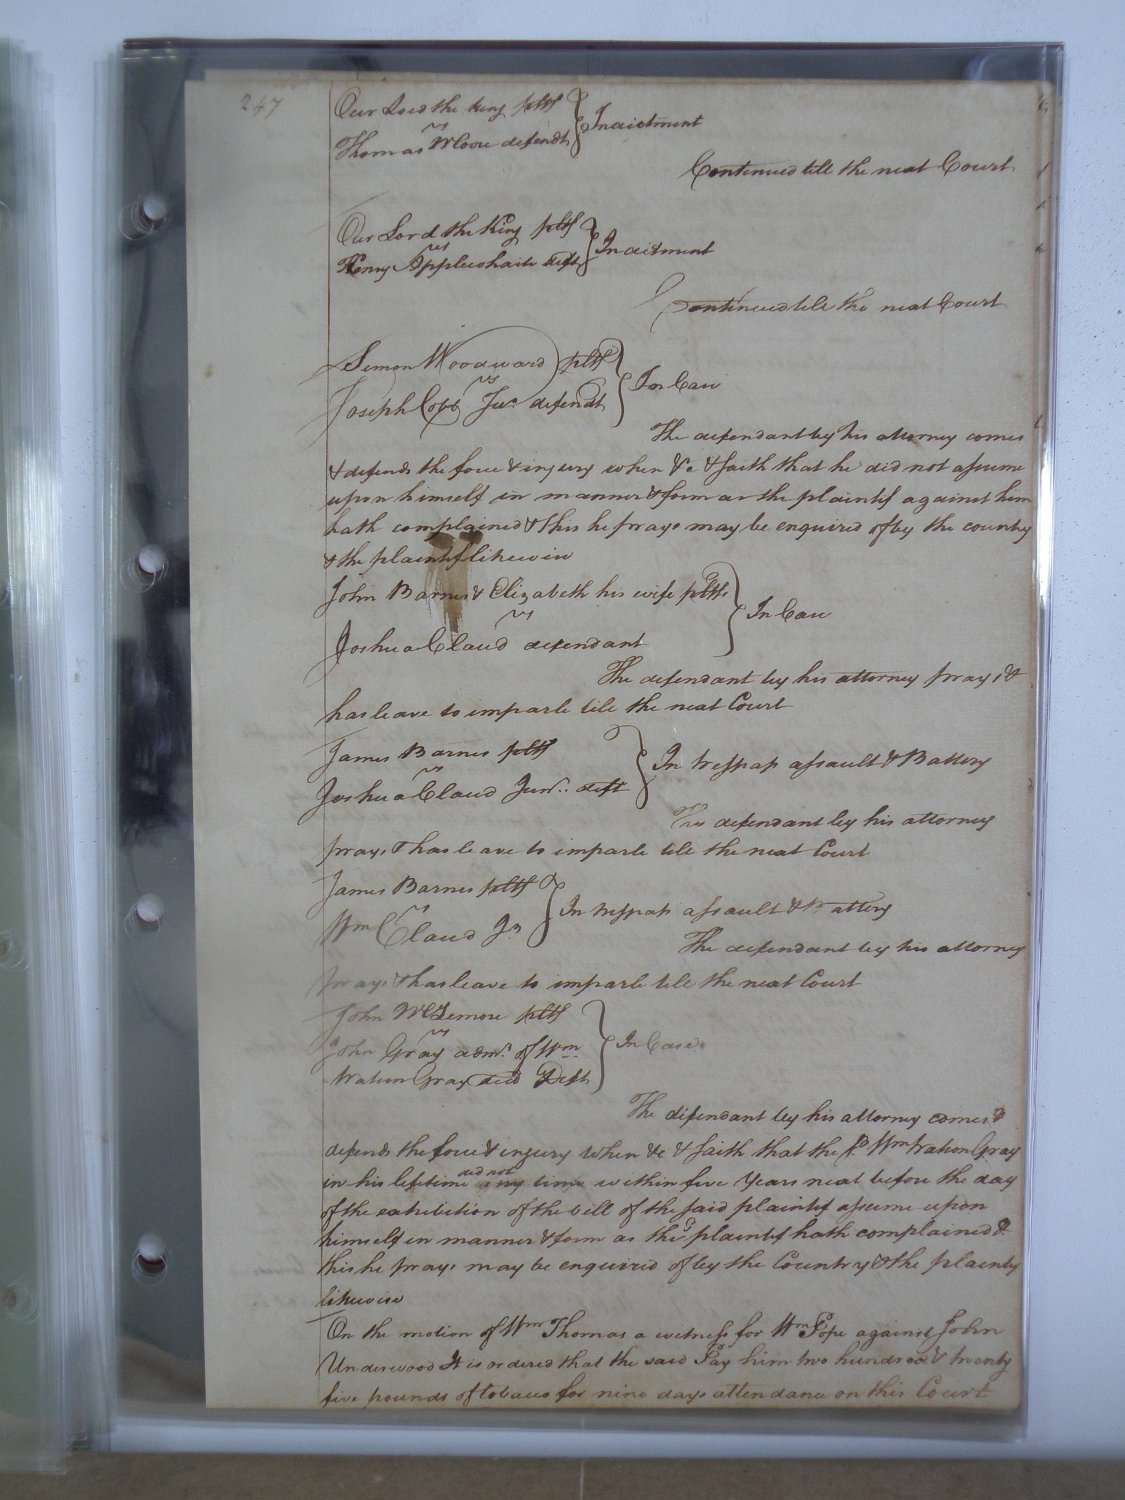 247
Our Lord the King pltf
vs
Thomas Moore defendt
Indictment
Continued till the next Court
Our Lord the King pltf
vs
Henry Applewhaite deft
Indictment
Continued till the next Court
Simon Woodward pltf
vs
Joseph Cobb Junr defendt
In Case
The defendant by his attorney comes
& defends the force & injury when &c & saith that he did not assume
upon himself in manner & form as the plaintif against him
hath complained & this he prays may be enquired of by the country
& the plaintif likewise
John Barnes & Elizabeth his wife pltfs
vs
Joshua Claud defendant
In Case
The defendant by his attorney prays &
has leave to imparle till the next Court
James Barnes pltf
vs
Joshua Claud Junr. deft
In trespass assault & Battery
The defendant by his attorney
prays & has leave to imparle till the next Court
James Barnes pltf
vs
Wm Claud Jr
In trespass assault & Battery
The defendant by his attorney
prays & has leave to imparle till the next Court
John McLemore pltf
vs
John Gray admr. of Wm
Watson Gray decd Deft
In Case
The defendant by his attorney comes &
defends the force & injury when &c & saith that the sd Wm Watson Gray
in his lifetime did not any time within five Years next before the day
of the exhibition of the bill of the said plaintif assume upon
himself in manner & form as the sd plaintif hath complained &
this he prays may be enquired of by the Country & the plaintif
likewise
On the motion of Wm Thomas a witness for Wm Pope against John
Underwood It is ordered that the said Pope Pay him two hundred & twenty
five pounds of tobacco for nine days attendance on this Court